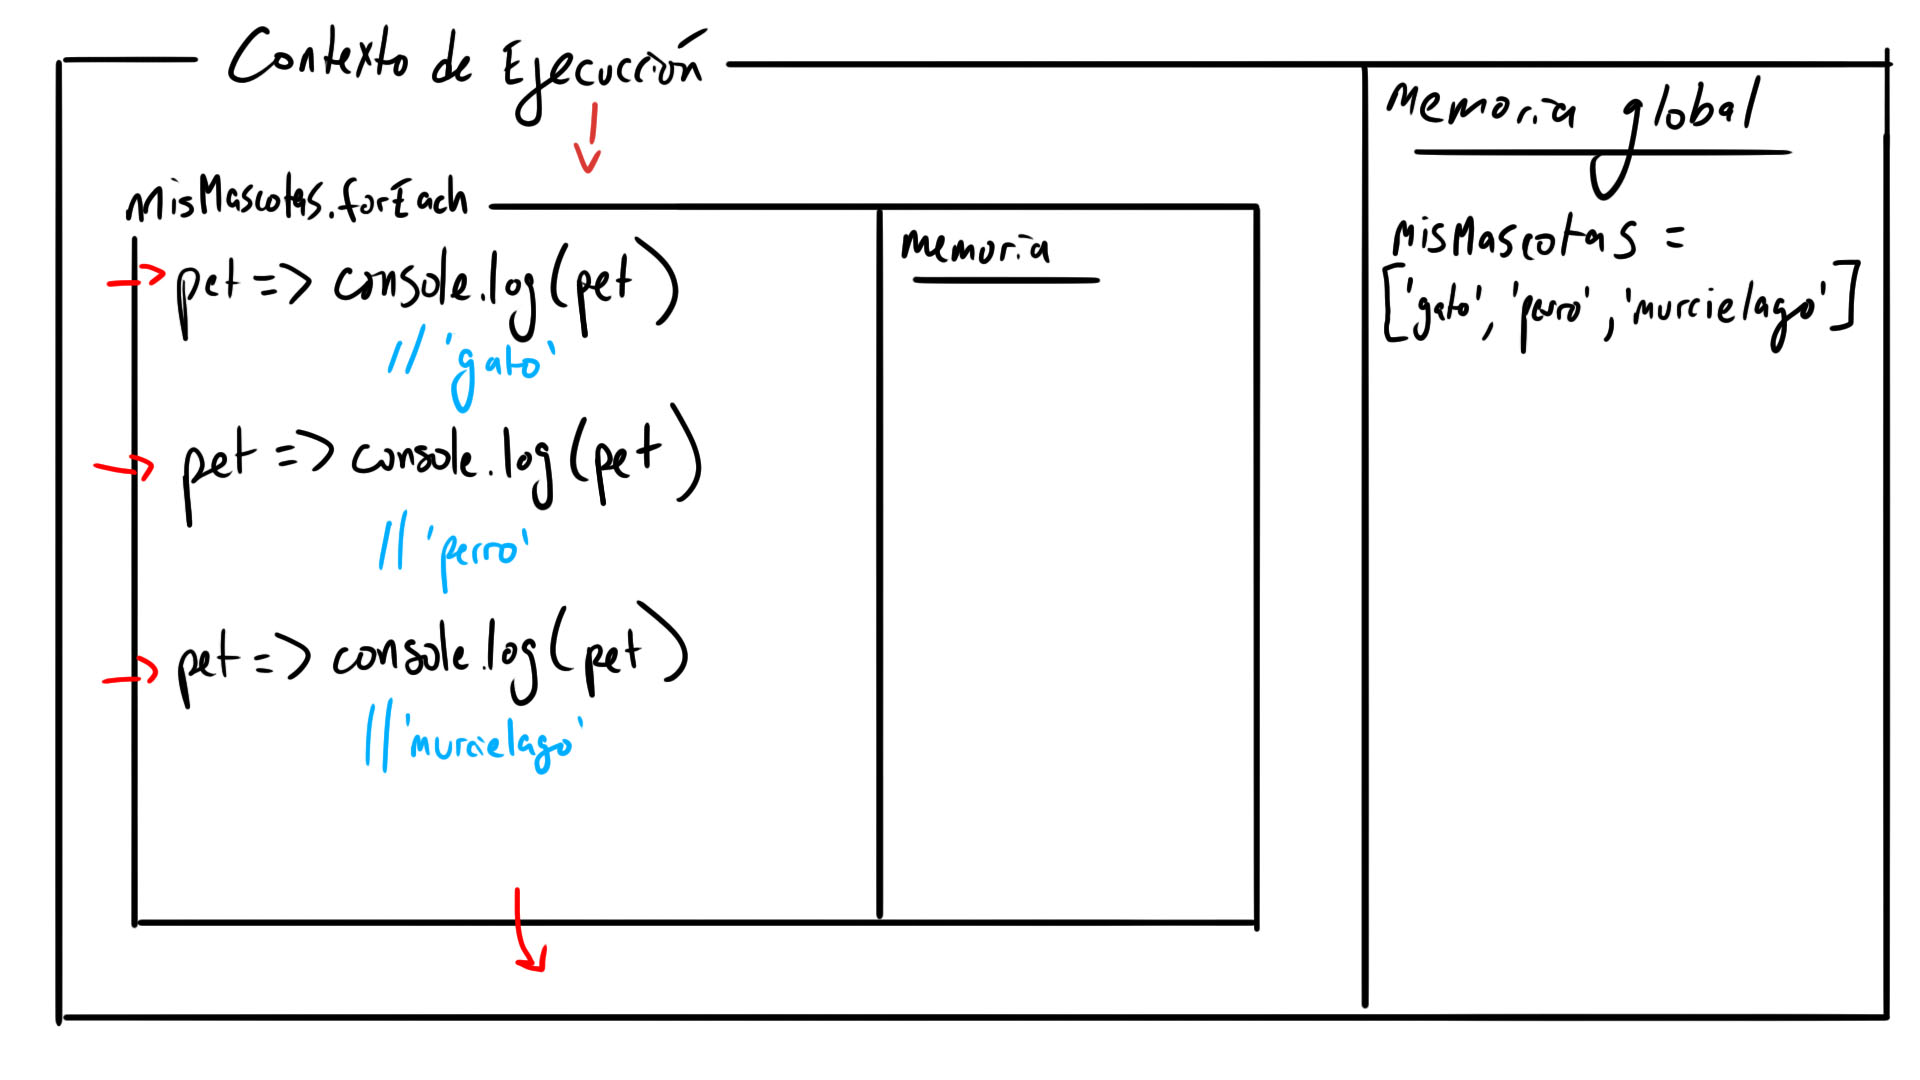 Contexto de Ejecucción
misMascotas.forEach
pet => console.log(pet)
// 'gato'
pet => console.log(pet)
// 'perro'
pet => console.log(pet)
// 'murcielago'
memoria
memoria global
misMascotas =
['gato', 'perro', 'murcielago']